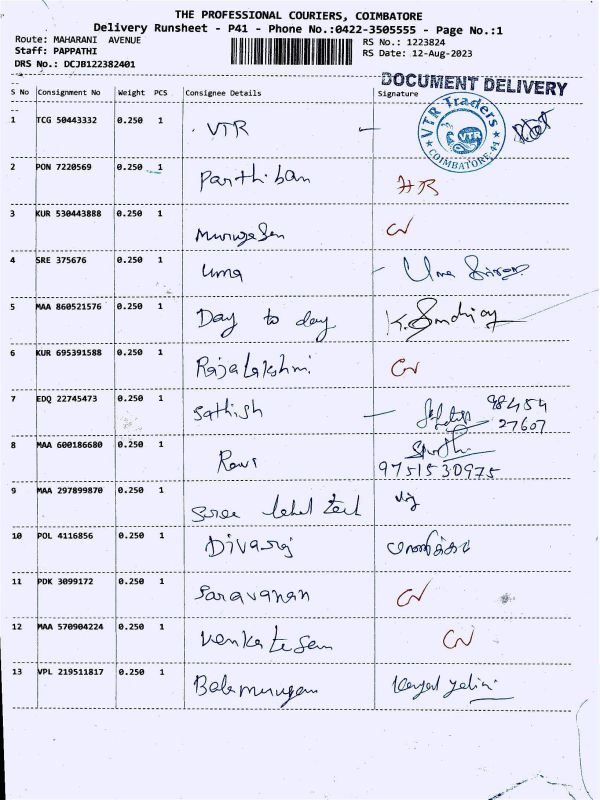 THE PROFESSIONAL COURIERS, COIMBATORE
Delivery Runsheet - P41 - Phone No.:0422-3505555 - Page No.:1
Route: MAHARANI AVENUE
RS No.: 1223824
Staff: PAPPATHI
RS Date: 12-Aug-2023
DRS No.: DCJB122382401
DOCUMENT DELIVERY
S No Consignment No Weight PCS Consignee Details Signature
1 TCG 50443332 0.250 1 VTR
VTR Traders
VTR
COIMBATORE-41
2 PON 7220569 0.250 1 Parthiban HR
3 KUR 530443888 0.250 1 Murugesan
4 SRE 375676 0.250 1 Uma Uma
5 MAA 860521576 0.250 1 Day to day
6 KUR 695391588 0.250 1 Rajalakshmi
7 EDQ 22745473 0.250 1 Sathish 98454
27607
8 MAA 600186680 0.250 1 Ravi
9751530975
9 MAA 297899870 0.250 1 Sree label tech
10 POL 4116856 0.250 1 Divaraj
11 PDK 3099172 0.250 1 Saravanan
12 MAA 570904224 0.250 1 Venkatesan
13 VPL 219511817 0.250 1 Balamurugan